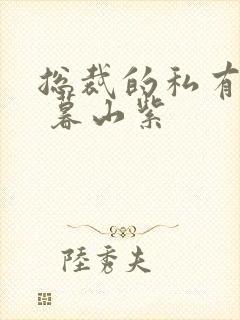 总裁的私有
暮山紫
陸秀夫